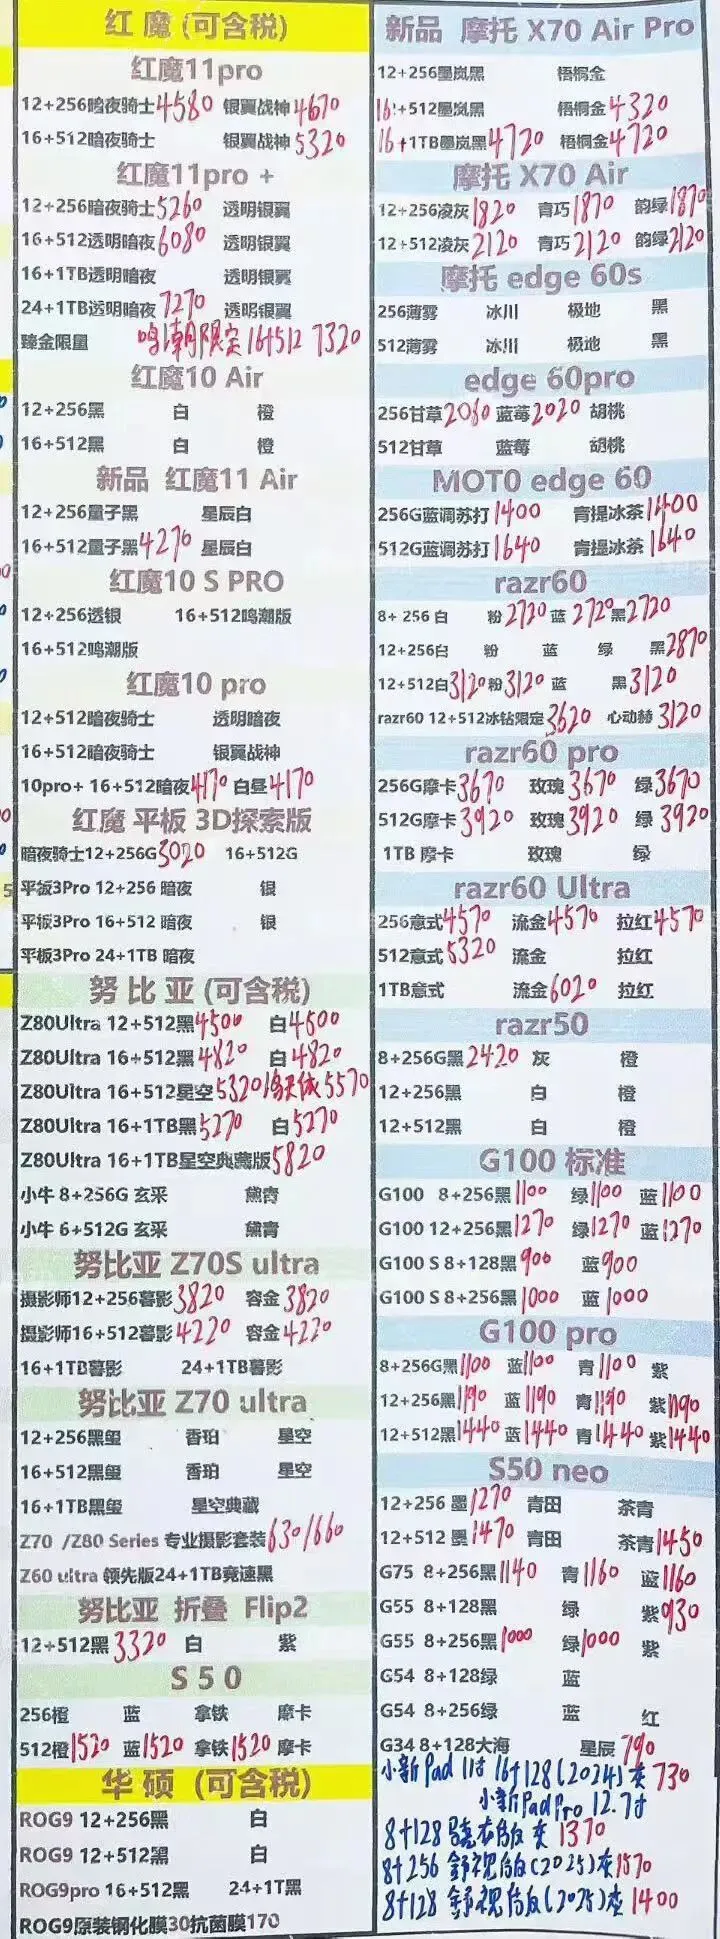 红 魔 (可含税)
红魔11pro
12+256暗夜骑士4580 银翼战神4670
16+512暗夜骑士 银翼战神5320
红魔11pro +
12+256暗夜骑士5260 透明银翼
16+512透明暗夜6080 透明银翼
16+1TB透明暗夜 透明银翼
24+1TB透明暗夜7270 透明银翼
臻金限量 鸣潮限定16+512 7320
红魔10 Air
12+256黑 白 橙
16+512黑 白 橙
新品 红魔11 Air
12+256量子黑 星辰白
16+512量子黑4270 星辰白
红魔10 S PRO
12+256透银 16+512鸣潮版
16+512鸣潮版
红魔10 pro
12+512暗夜骑士 透明暗夜
16+512暗夜骑士 银翼战神
10pro+ 16+512暗夜4170 白昼4170
红魔 平板 3D探索版
暗夜骑士12+256G3020 16+512G
平板3Pro 12+256 暗夜 银
平板3Pro 16+512 暗夜 银
平板3Pro 24+1TB 暗夜
努 比 亚 (可含税)
Z80Ultra 12+512黑4500 白4500
Z80Ultra 16+512黑4820 白4820
Z80Ultra 16+512星空5320 5570
Z80Ultra 16+1TB黑5270 白5270
Z80Ultra 16+1TB星空典藏版5820
小牛 8+256G 玄采 黛青
小牛 6+512G 玄采 黛青
努比亚 Z70S ultra
摄影师12+256暮影3820 容金3820
摄影师16+512暮影4220 容金4220
16+1TB暮影 24+1TB暮影
努比亚 Z70 ultra
12+256黑玺 香珀 星空
16+512黑玺 香珀 星空
16+1TB黑玺 星空典藏
Z70 /Z80 Series 专业摄影套装630/660
Z60 ultra 领先版24+1TB竞速黑
努比亚 折叠 Flip2
12+512黑3320 白 紫
S 5 0
256橙 蓝 拿铁 摩卡
512橙1520 蓝1520 拿铁1520 摩卡
华 硕 (可含税)
ROG9 12+256黑 白
ROG9 12+512黑 白
ROG9pro 16+512黑 24+1T黑
ROG9原装钢化膜30抗菌膜170
新品 摩托 X70 Air Pro
12+256墨岚黑 梧桐金
16+512墨岚黑 梧桐金4320
16+1TB墨岚黑4720 梧桐金4720
摩托 X70 Air
12+256凌灰1820 青巧1870 韵绿1870
12+512凌灰2120 青巧2120 韵绿2120
摩托 edge 60s
256薄雾 冰川 极地 黑
512薄雾 冰川 极地 黑
edge 60pro
256甘草2080 蓝莓2020 胡桃
512甘草 蓝莓 胡桃
MOTO edge 60
256G蓝调苏打1400 青提冰茶1400
512G蓝调苏打1640 青提冰茶1640
razr60
8+ 256 白 粉2720 蓝2720 黑2720
12+256白 粉 蓝 绿 黑2870
12+512白3120 粉3120 蓝 黑3120
razr60 12+512冰钻限定3620 心动赫3120
razr60 pro
256G摩卡3670 玫瑰3670 绿3670
512G摩卡3920 玫瑰3920 绿3920
1TB 摩卡 玫瑰 绿
razr60 Ultra
256意式4570 流金4570 拉红4570
512意式5320 流金 拉红
1TB意式 流金6020 拉红
razr50
8+256G黑2420 灰 橙
12+256黑 白 橙
12+512黑 白 橙
G100 标准
G100 8+256黑1100 绿1100 蓝1100
G100 12+256黑1270 绿1270 蓝1270
G100 S 8+128黑900 蓝900
G100 S 8+256黑1000 蓝1000
G100 pro
8+256G黑1100 蓝1100 青1100 紫
12+256黑1190 蓝1190 青1190 紫1190
12+512黑1440 蓝1440 青1440 紫1440
S50 neo
12+256 墨1270 青田 茶青
12+512 墨1470 青田 茶青1450
G75 8+256黑1140 青1160 蓝1160
G55 8+128黑 绿 紫930
G55 8+256黑1000 绿1000 紫
G54 8+128绿 蓝
G54 8+256绿 蓝 红
G34 8+128大海 星辰790
小新Pad 11寸 16+128(2024)灰730
小新PadPro 12.7寸
8+128 骁龙版灰1370
8+256 舒视版(2025)灰1570
8+128 舒视版(2025)灰1400